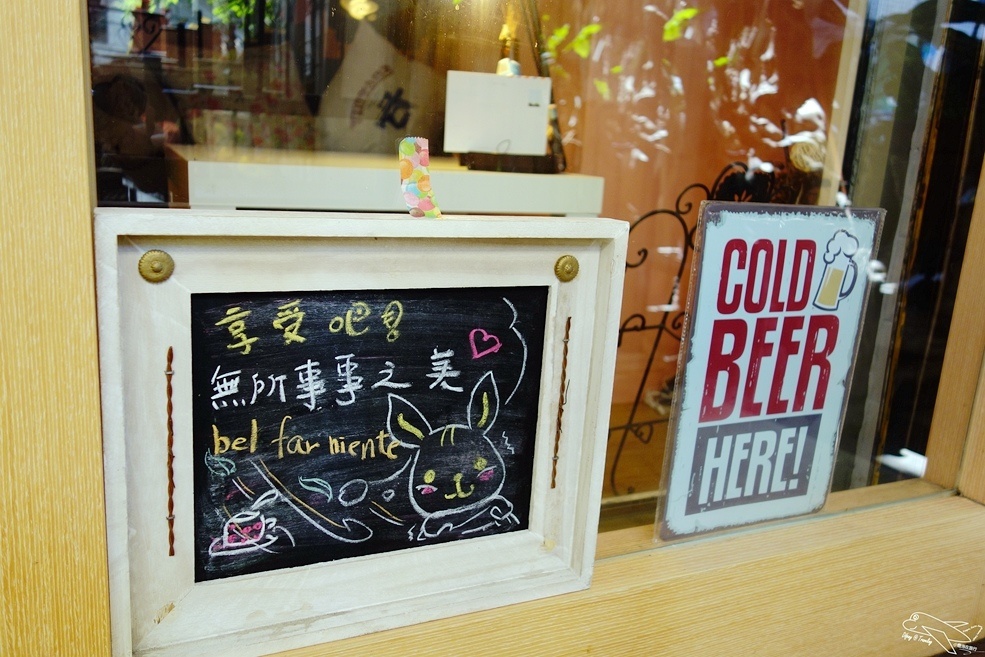 享受吧!
無所事事之美
bel far niente
COLD
BEER
HERE!